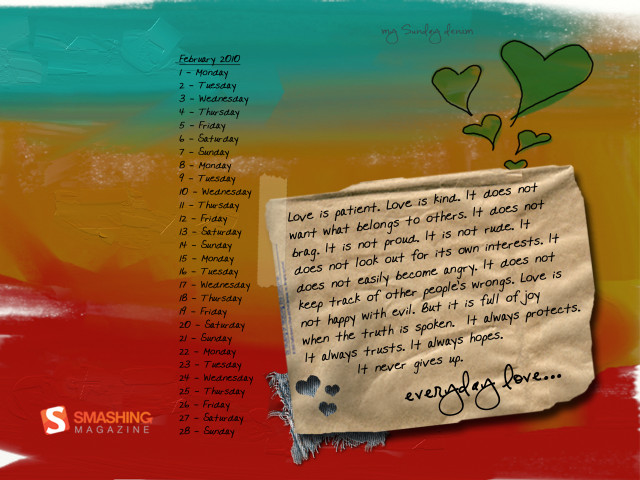 my Sunday denim
February 2010
1 - Monday
2 - Tuesday
3 - Wednesday
4 - Thursday
5 - Friday
6 - Saturday
7 - Sunday
8 - Monday
9 - Tuesday
10 - Wednesday
11 - Thursday
12 - Friday
13 - Saturday
14 - Sunday
15 - Monday
16 - Tuesday
17 - Wednesday
18 - Thursday
19 - Friday
20 - Saturday
21 - Sunday
22 - Monday
23 - Tuesday
24 - Wednesday
25 - Thursday
26 - Friday
27 - Saturday
28 - Sunday
Love is patient. Love is kind. It does not
want what belongs to others. It does not
brag. It is not proud. It is not rude. It
does not look out for its own interests. It
does not easily become angry. It does not
keep track of other people's wrongs. Love is
not happy with evil. But it is full of joy
when the truth is spoken. It always protects.
It always trusts. It always hopes.
It never gives up.
everyday love...
S
SMASHING
MAGAZINE